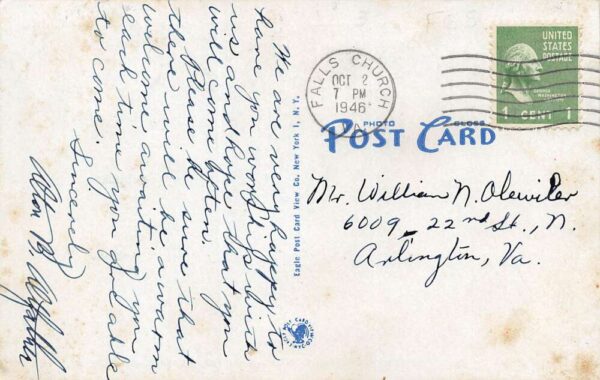 We are very happy to
have you worship with
us and hope that you
will come often.
Please be sure that
there will be a warm
welcome awaiting you
each time you are able
to come.
Sincerely
Eagle Post Card View Co., New York 1, N. Y.
FALLS CHURCH
OCT 2
7 PM
1946
UNITED
STATES
POSTAGE
1 CENT 1
PHOTO GLOSS
POST CARD
Mr. William N. Olewiler
6009 - 22nd St., N.
Arlington, Va.